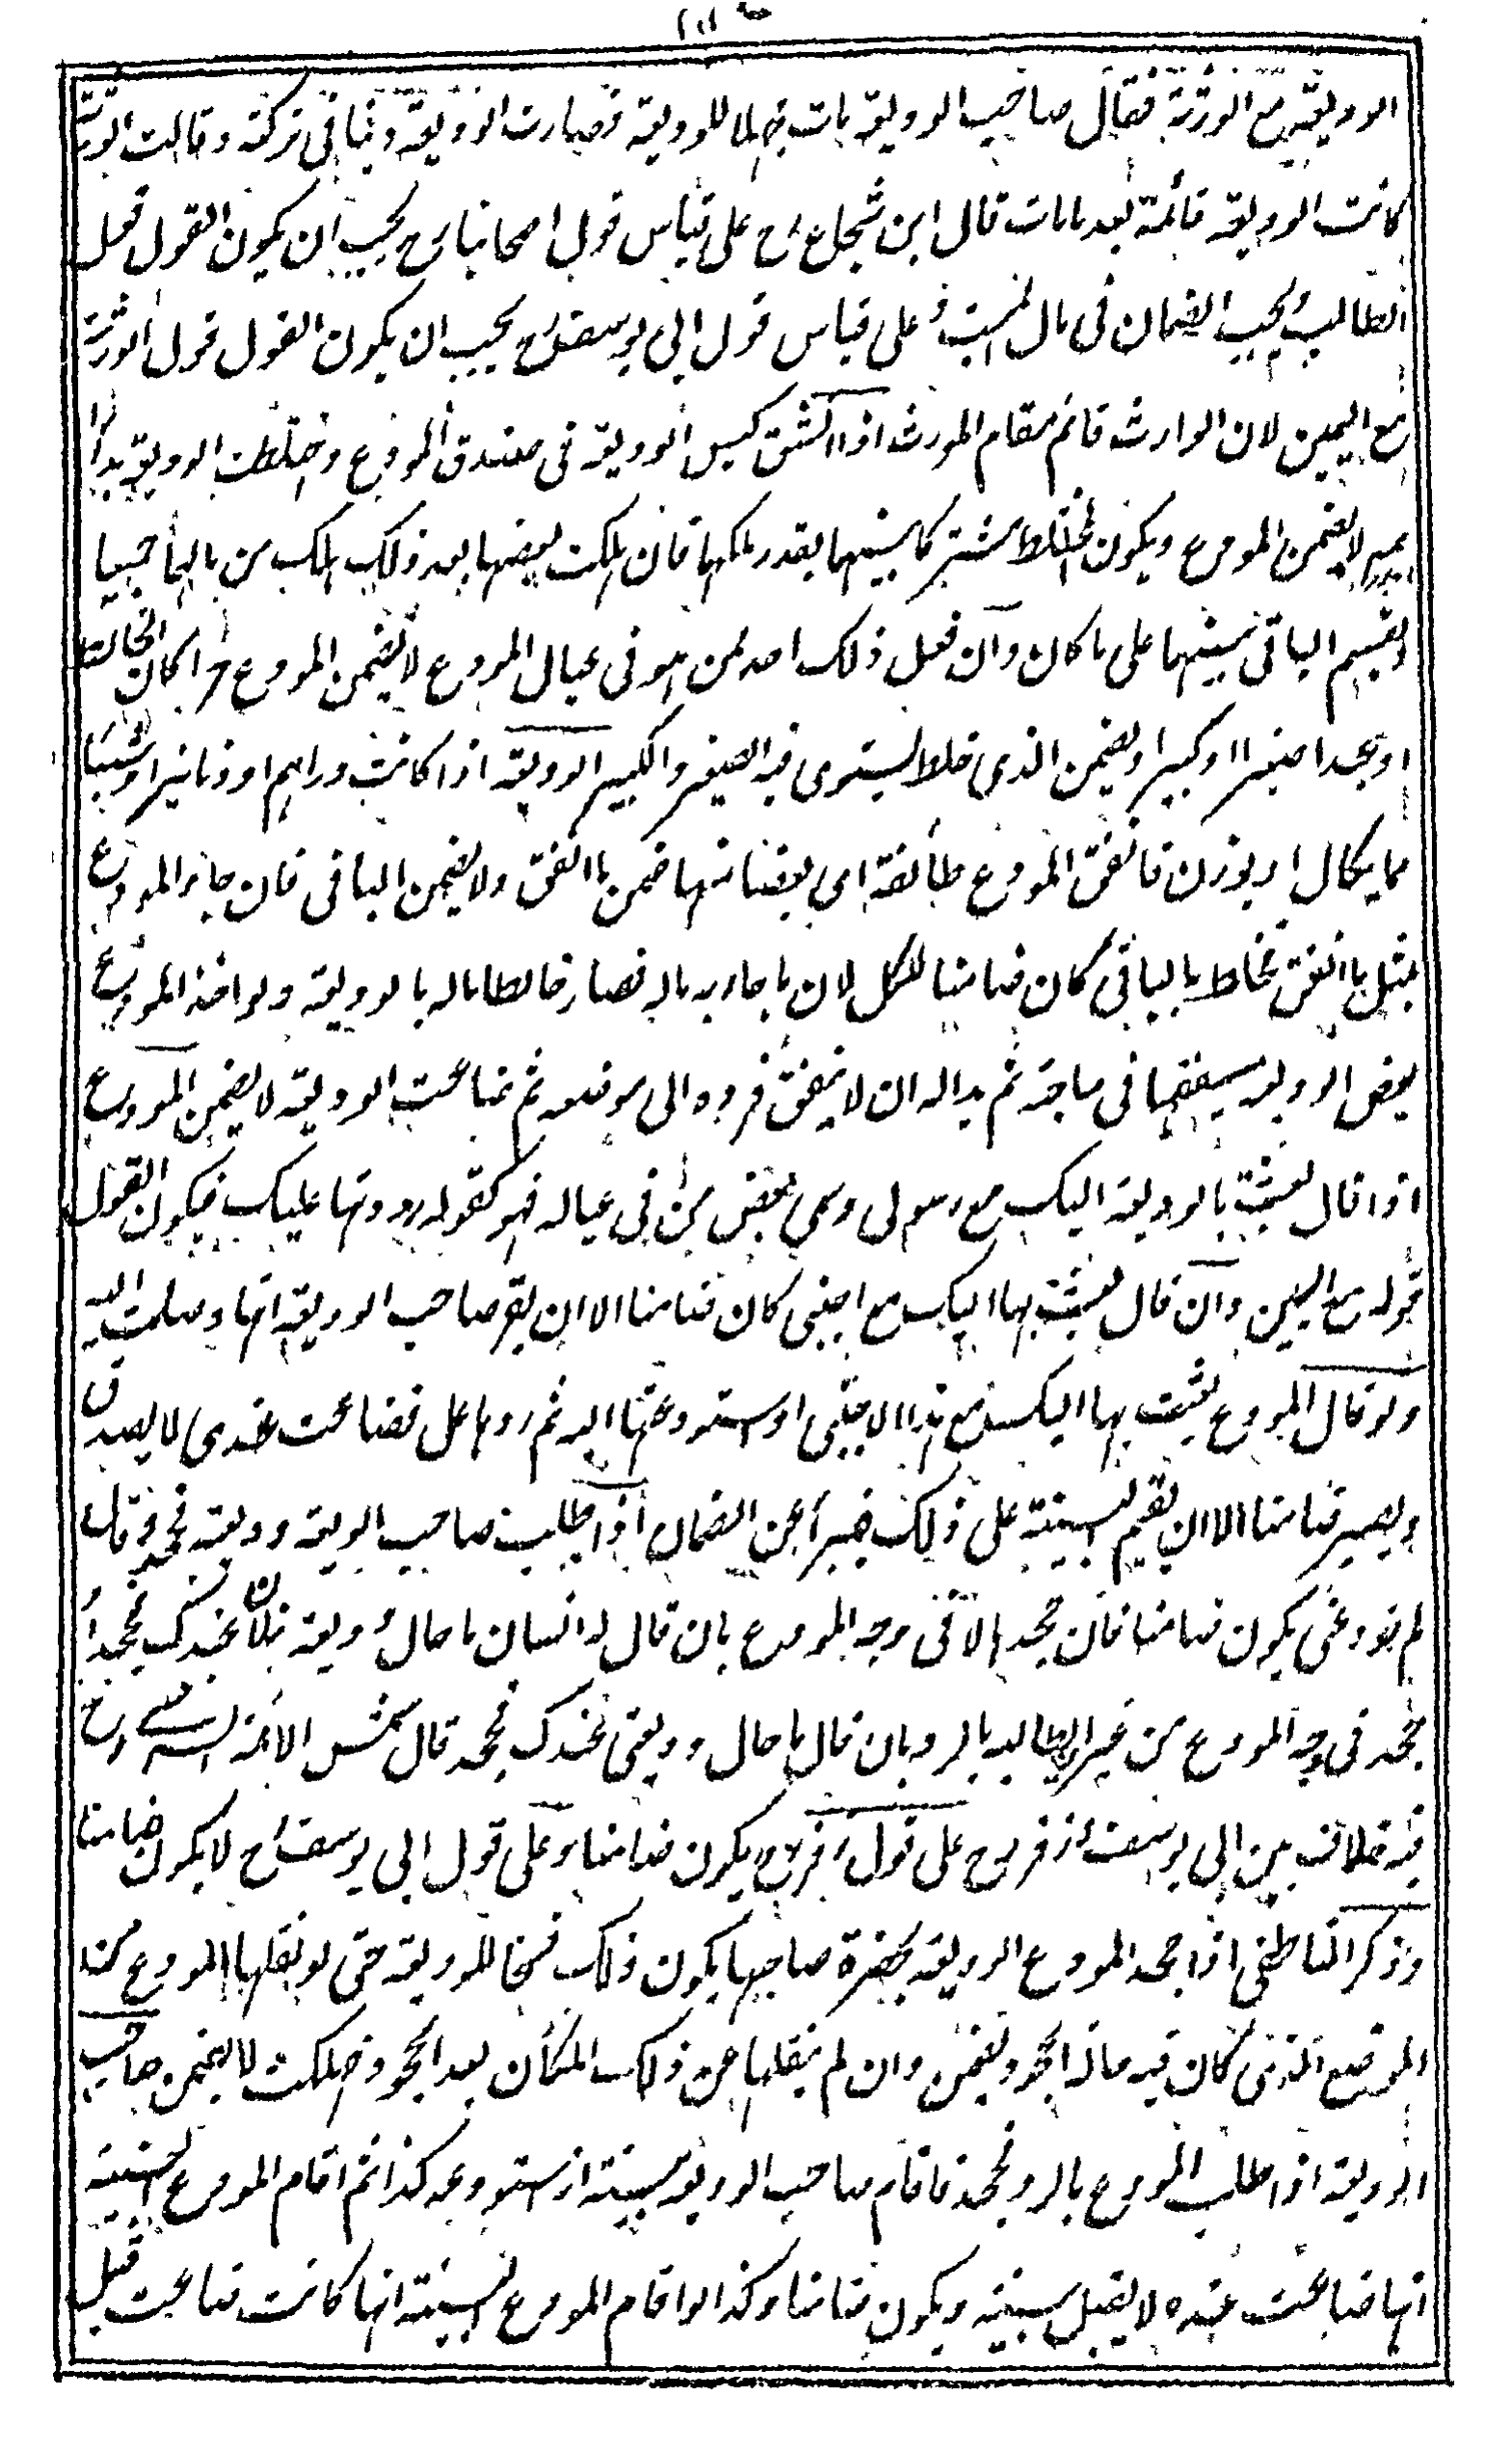 الوديعة مع الورثة فقال صاحب الوديعة مات مجهلا للوديعة فصارت الوديعة دينا في تركته وقالت الورثة
كانت الوديعة قائمة بعد ما مات قال ابن شجاع رح على قياس قول اصحابنا رح يجب ان يكون القول قول
الطالب ويجب الضمان في مال الميت وعلى قياس قول ابي يوسف رح يجب ان يكون القول قول الورثة
مع اليمين لان الوارث قائم مقام المورث اذا انشق كيس الوديعة في صندوق المودع واختلطت الوديعة بدراهم
لا يضمن المودع ويكون المختلط مشتركا بينهما بقدر ملكهما فان هلك بعضها بعد ذلك هلك من مالهما جميعا
ويقسم الباقي بينهما على ما كان وان فعل ذلك احد ممن هو في عيال المودع لا يضمن المودع حرا كان الخالط
او عبدا صغيرا او كبيرا ويضمن الذي خلط يستوي فيه الصغير والكبير الوديعة اذا كانت دراهم او دنانير او شيئا
مما يكال او يوزن فانفق المودع طائفة اي بعضا منها ضمن ما انفق ولا يضمن الباقي فان جاء المودع
بمثل ما انفق فخلط بالباقي كان ضامنا للكل لان ما جاء به ماله فصار خالطا ماله بالوديعة ولو اخذ المودع
بعض الوديعة لينفقها في حاجته ثم بدا له ان لا ينفق فرده الى موضعه ثم ضاعت الوديعة لا يضمن المودع
اذا قال بعثت بالوديعة اليك مع رسولي وسمى بعض من في عياله فهو كقوله رددتها عليك فيكون القول
قوله مع اليمين وان قال بعثت بها اليك مع اجنبي كان ضامنا الا ان يقر صاحب الوديعة انها وصلت اليه
ولو قال المودع بعثت بها اليك مع هذا الاجنبي او استودعتها اليه ثم ردها علي فضاعت عندي لا يصدق
ويصير ضامنا الا ان يقيم البينة على ذلك فيبرأ عن الضمان اذا طلب صاحب الوديعة وديعته فجحد وقال
لم تودعني يكون ضامنا فان جحد لا في وجه المودع بان قال له انسان ما حال وديعة فلان عندك فجحد او
جحد في وجه المودع من غير ان يطالبه بالرد بان قال ما حال وديعتي عندك فجحد قال شمس الائمة السرخسي رح
فيه خلاف بين ابي يوسف وزفر رح على قول زفر رح يكون ضامنا وعلى قول ابي يوسف رح لا يكون ضامنا
وذكر الناطفي اذا جحد المودع الوديعة بحضرة صاحبها يكون ذلك فسخا للوديعة حتى لو نقلها المودع من
الموضع الذي كان فيه حالة الجحود يضمن وان لم ينقلها عن ذلك المكان بعد الجحود فهلكت لا يضمن صاحب
الوديعة اذا طلب المودع بالرد فجحد فاقام صاحب الوديعة بينة انه استودعه كذا ثم اقام المودع البينة
انها ضاعت عنده لا يقبل بينته ويكون ضامنا وكذا لو اقام المودع البينة انها كانت ضاعت قبل